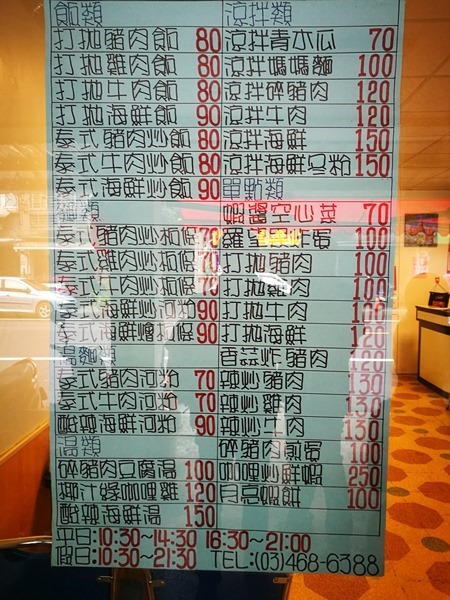 飯類
打拋豬肉飯 80
打拋雞肉飯 80
打拋牛肉飯 80
打拋海鮮飯 90
泰式豬肉炒飯 80
泰式牛肉炒飯 80
泰式海鮮炒飯 90
麵類
泰式豬肉炒板條 70
泰式雞肉炒板條 70
泰式牛肉炒板條 70
泰式海鮮炒河粉 90
泰式海鮮燴板條 90
湯麵類
泰式豬肉河粉 70
泰式牛肉河粉 70
酸辣海鮮河粉 90
湯類
碎豬肉豆腐湯 100
椰汁綠咖哩雞 120
酸辣海鮮湯 150
涼拌類
涼拌青木瓜 70
涼拌媽媽麵 100
涼拌碎豬肉 120
涼拌牛肉 120
涼拌海鮮 150
涼拌海鮮冬粉 150
單點類
蝦醬空心菜 70
羅望果炸蛋 100
打拋豬肉 100
打拋雞肉 100
打拋牛肉 100
打拋海鮮 120
香蒜炸豬肉 120
辣炒豬肉 130
辣炒雞肉 130
辣炒牛肉 130
碎豬肉煎蛋 100
咖哩炒鮮蝦 250
月亮蝦餅 100
平日:10:30~14:30 16:30~21:00
假日:10:30~21:30 TEL:(03)468-6388